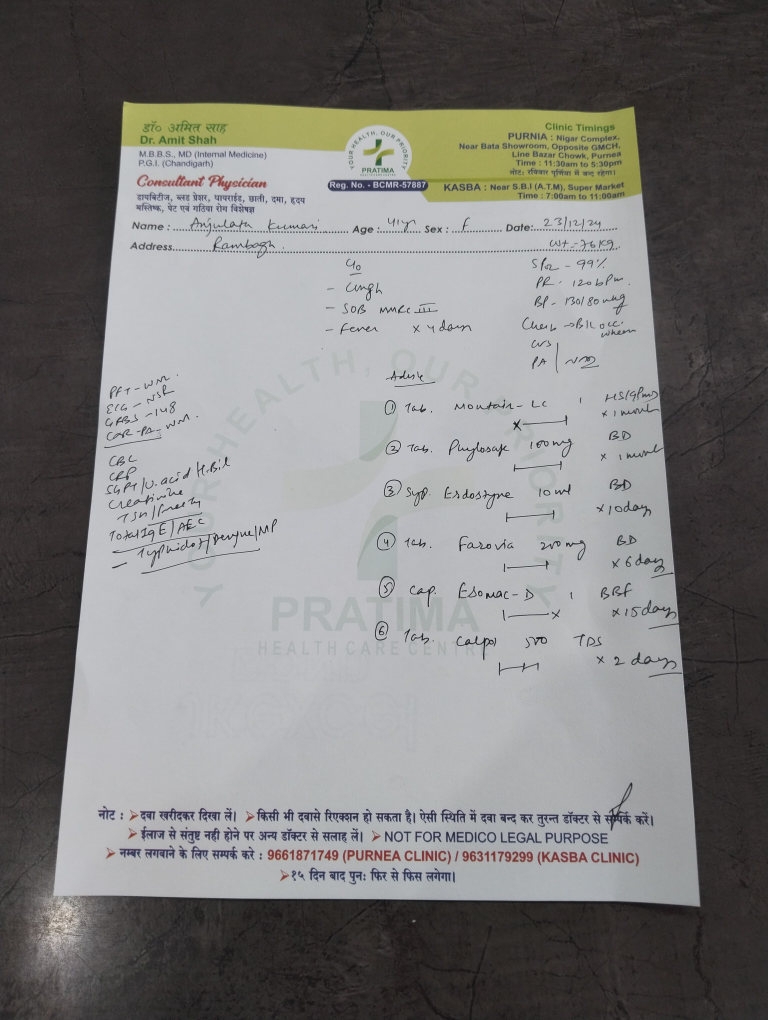 डॉ० अमित साह
Dr. Amit Shah
M.B.B.S., MD (Internal Medicine)
P.G.I. (Chandigarh)
Consultant Physician
डायबिटीज, ब्लड प्रेशर, थायराईड, छाती, दमा, हृदय
मस्तिष्क, पेट एवं गठिया रोग विशेषज्ञ
YOUR HEALTH, OUR PRIORITY
PRATIMA
Reg. No. - BCMR-57887
Clinic Timings
PURNIA : Nigar Complex,
Near Bata Showroom, Opposite GMCH,
Line Bazar Chowk, Purnea
Time : 11:30am to 5:30pm
नोट: रविवार पूर्णिया में बन्द रहेगा।
KASBA : Near S.B.I (A.T.M), Super Market
Time : 7:00am to 11:00am
Name : Anjulata Kumari Age : 41yr Sex : F Date: 23/12/24
Address Rambagh. Wt.-76Kg
C/o
- Cough
- SOB MMRC III
- Fever x 4 days
SPO2 - 99%
PR - 120 bPm
BP - 130/80 mmHg
Chest → B/L occ. wheeze
CVS
PA
PFT - WNL
ECG - NSR
GRBS - 148
CXR-PA-WNL
CBC
CRP
SGPT/U.acid H.Bil
Creatinine
Total IgE/AEC
- Typhidot/Dengue/MP
Advise
① Tab. Montair-LC 1 HS(9Pm)
x 1 month
② Tab. Phylosafe 100mg BD
x 1 month
③ Syp. Erdostyne 10ml BD
x 10 day
④ Tab. Farovia 200mg BD
x 6 day
⑤ Cap. Esomac-D 1 BBF
x 15 days
⑥ Tab. Calpol 500 TDS
x 2 days
YOUR HEALTH, OUR PRIORITY
PRATIMA
HEALTH CARE CENTRE
नोट : ➤ दवा खरीदकर दिखा लें। ➤ किसी भी दवासे रिएक्शन हो सकता है। ऐसी स्थिति में दवा बन्द कर तुरन्त डॉक्टर से सम्पर्क करें।
➤ ईलाज से संतुष्ट नही होने पर अन्य डॉक्टर से सलाह लें। ➤ NOT FOR MEDICO LEGAL PURPOSE
➤ नम्बर लगवाने के लिए सम्पर्क करे : 9661871749 (PURNEA CLINIC) / 9631179299 (KASBA CLINIC)
➤ १५ दिन बाद पुनः फिर से फिस लगेगा।